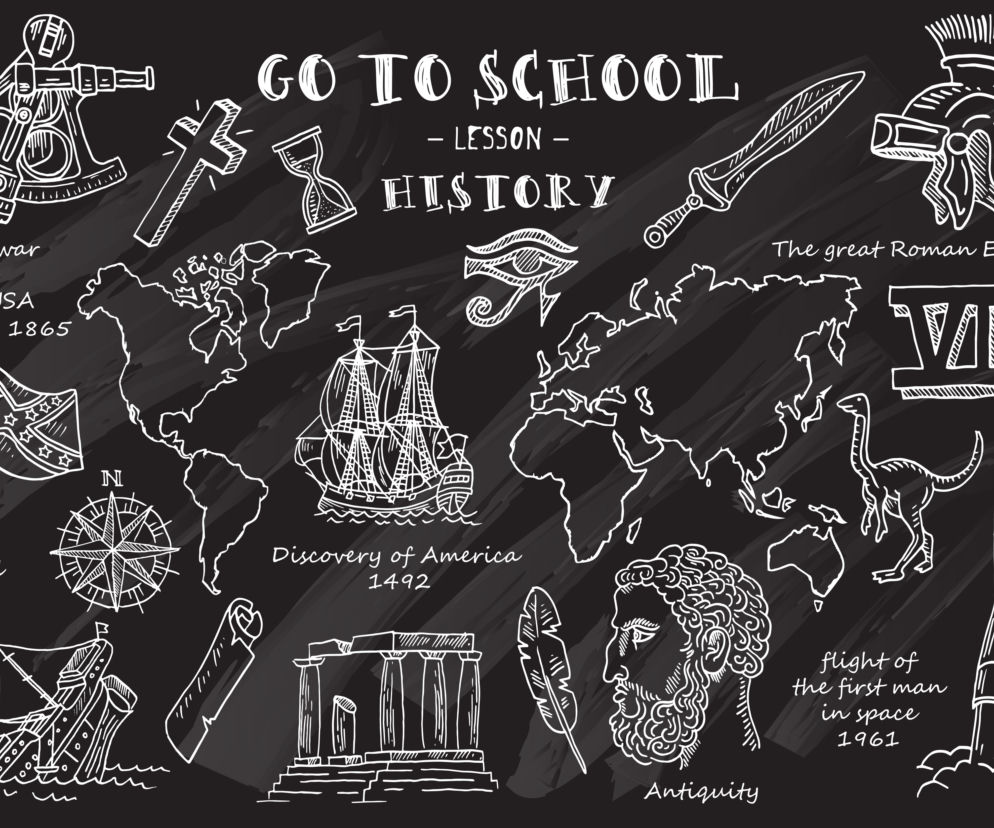 GO TO SCHOOL
– LESSON –
HISTORY
war
USA
1865
The great Roman E
VII
N
Discovery of America
1492
flight of
the first man
in space
1961
Antiquity